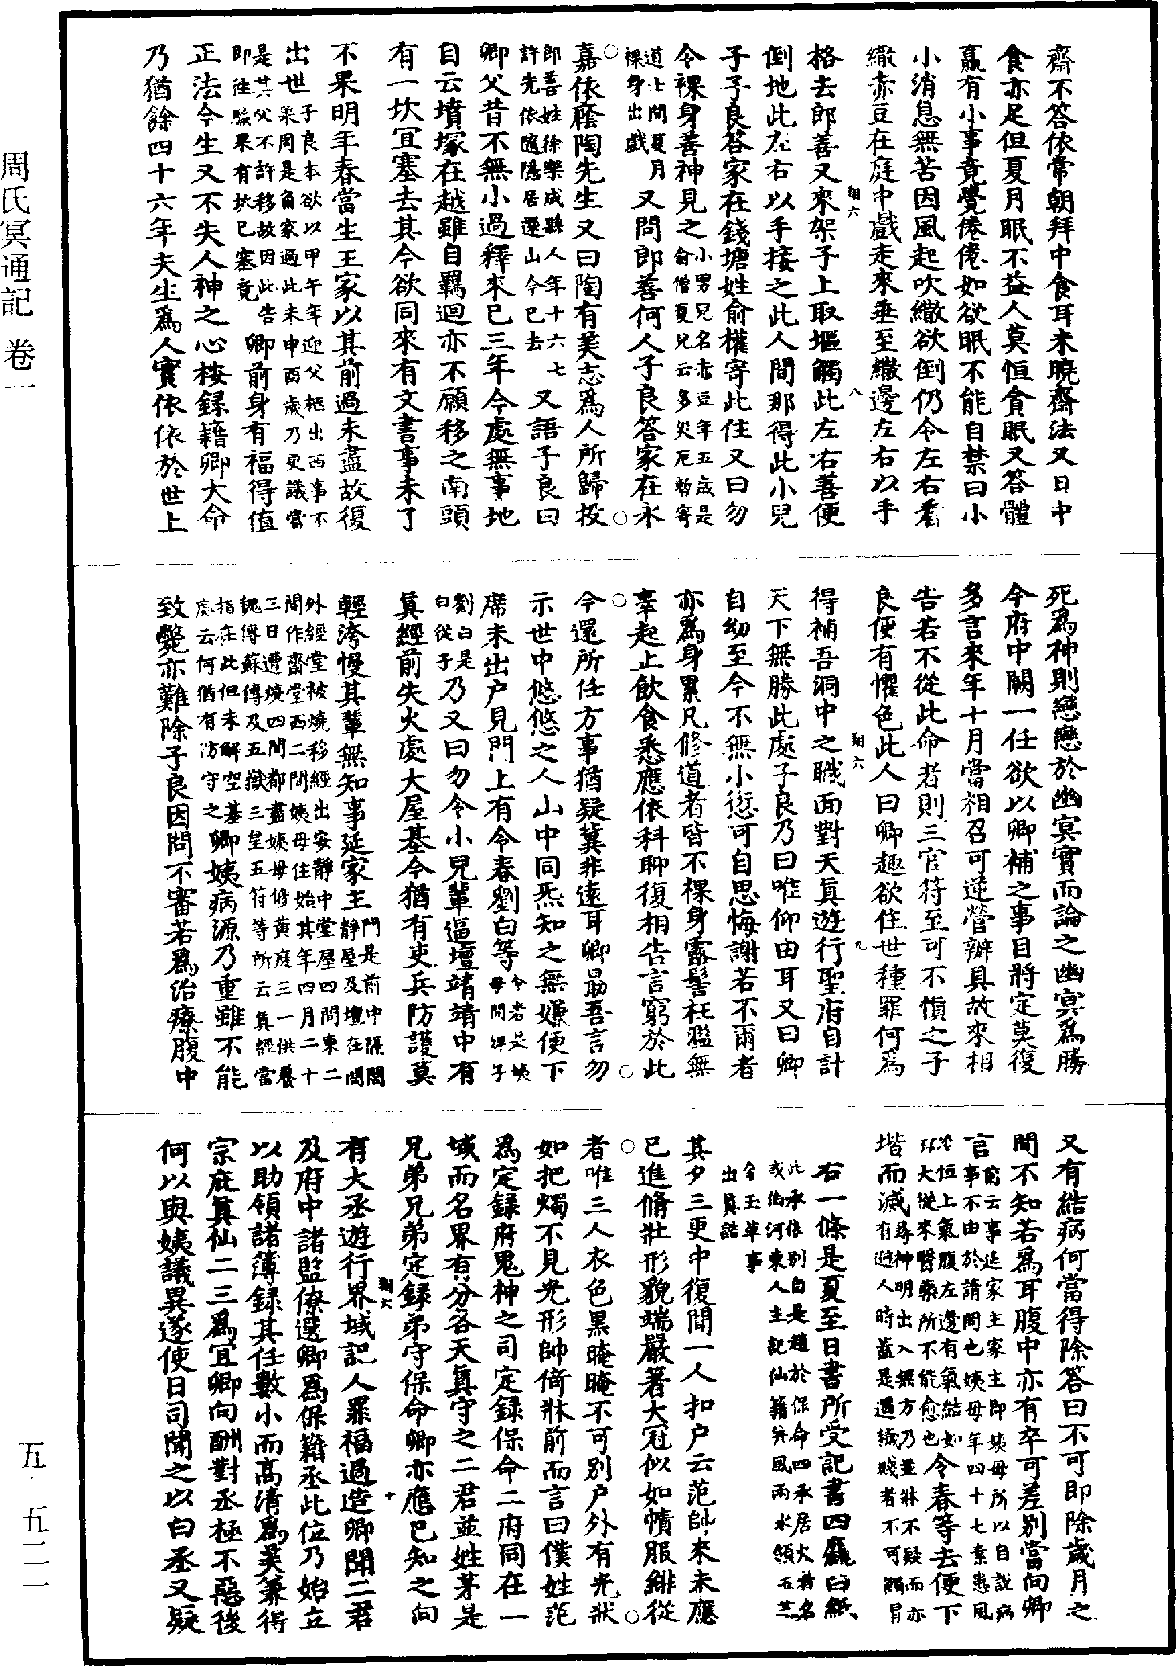 齋不答依常朝拜中食耳未曉齋法又曰中
食亦足但夏月眠不益人莫恒貪眠又答體
羸有小事竟覺倦倦如欲眠不能自禁曰小
小消息無苦因風起吹繖欲倒仍令左右看
繖赤豆在庭中戲走來垂至繖邊左右以手
格去郎善又來架子上取堰觸此左右善便
倒地此左右以手接之此人問那得此小兒
子子良答家在錢塘姓俞權寄此住又曰勿
令裸身善神見之小男兒名赤豆年五歲是俞僧夏兒云多災厄暫寄
道士間夏月裸身出戲又問郎善何人子良答家在永
嘉依廕陶先生又曰陶有美志爲人所歸投
郎善姓徐樂成縣人年十六七許先依隨隱居還山今已去又語子良曰
卿父昔不無小過釋來已三年今處無事地
自云墳塚在越雖自羈迴亦不願移之南頭
有一坎宜塞去其今欲同來有文書事未了
不果明年春當生王家以其前過未盡故復
出世子良本欲以甲午年迎父柩出西事不
是其父不許移故因此告
即往驗果有坎已塞竟卿前身有福得值
正法今生又不失人神之心按錄籍卿大命
乃猶餘四十六年夫生爲人實依依於世上
死爲神則戀戀於幽冥實而論之幽冥爲勝
今府中闕一任欲以卿補之事目將定莫復
多言來年十月當相召可逆營辦具故來相
告若不從此命者則三官符至可不慎之子
良便有懼色此人曰卿趣欲住世種罪何爲
得補吾洞中之職面對天真遊行聖府自計
天下無勝此處子良乃曰唯仰由耳又曰卿
自幼至今不無小愆可自思悔謝若不爾者
亦爲身累凡修道者皆不裸身露髻枉濫無
辜起止飲食悉應依科聊復相告言窮於此
今還所任方事猶疑冀非遠耳卿勗吾言勿
示世中悠悠之人山中同炁知之無嫌便下
席未出户見門上有令春劉白等令春是姨母間婢子
劉白是白從子乃又曰勿令小兒輩逼壇靖靖中有
真經前失火處大屋基今猶有吏兵防護莫
輕洿慢其輩無知事延家主門是前中隔閤靜屋及壇在閤
外經堂被燒移經出安靜中堂屋四間東二
間作齋堂西二間姨母住始其年四月二十
三日遭燒四間都盡姨母修黃庭三一供養
魏傳蘇傳及五嶽三皇五符等所云真經當
指在此但未解空基
處云何猶有防守之卿姨病源乃重雖不能
致斃亦難除子良因問不審若爲治療腹中
又有結病何當得除答曰不可即除歲月之
間不知若爲耳腹中亦有卒可差別當向卿
言前云事延家主家主即姨母所以自説病
事不由於請問也姨母年四十七素患風
冷恒上氣腹左邊有氣結如
杯大從來醫藥所不能愈也令春等去便下
堦而滅
右一條是夏至日書所受記書四麤白紙
此丞依別自是趙於保命四丞居大者名
其夕三更中復聞一人扣户云范帥來未應
已進脩壯形貌端嚴著大冠似如幘服緋從
者唯三人衣色黑晻晻不可別户外有光狀
如把燭不見光形帥倚牀前而言曰僕姓范
爲定録府鬼神之司定録保命二府同在一
城而名界有分各天真守之二君並姓茅是
兄弟兄弟定録弟守保命卿亦應已知之向
有大丞遊行界域記人罪福過造卿聞二君
及府中諸監僚選卿爲保籍丞此位乃始立
以助領諸簿録其任數小而高清爲美兼得
宗庇真仙二三爲宜卿向酬對丞極不惡後
何以與姨議異遂使日司聞之以白丞丞又疑
周氏冥通記 卷一
五·五二一